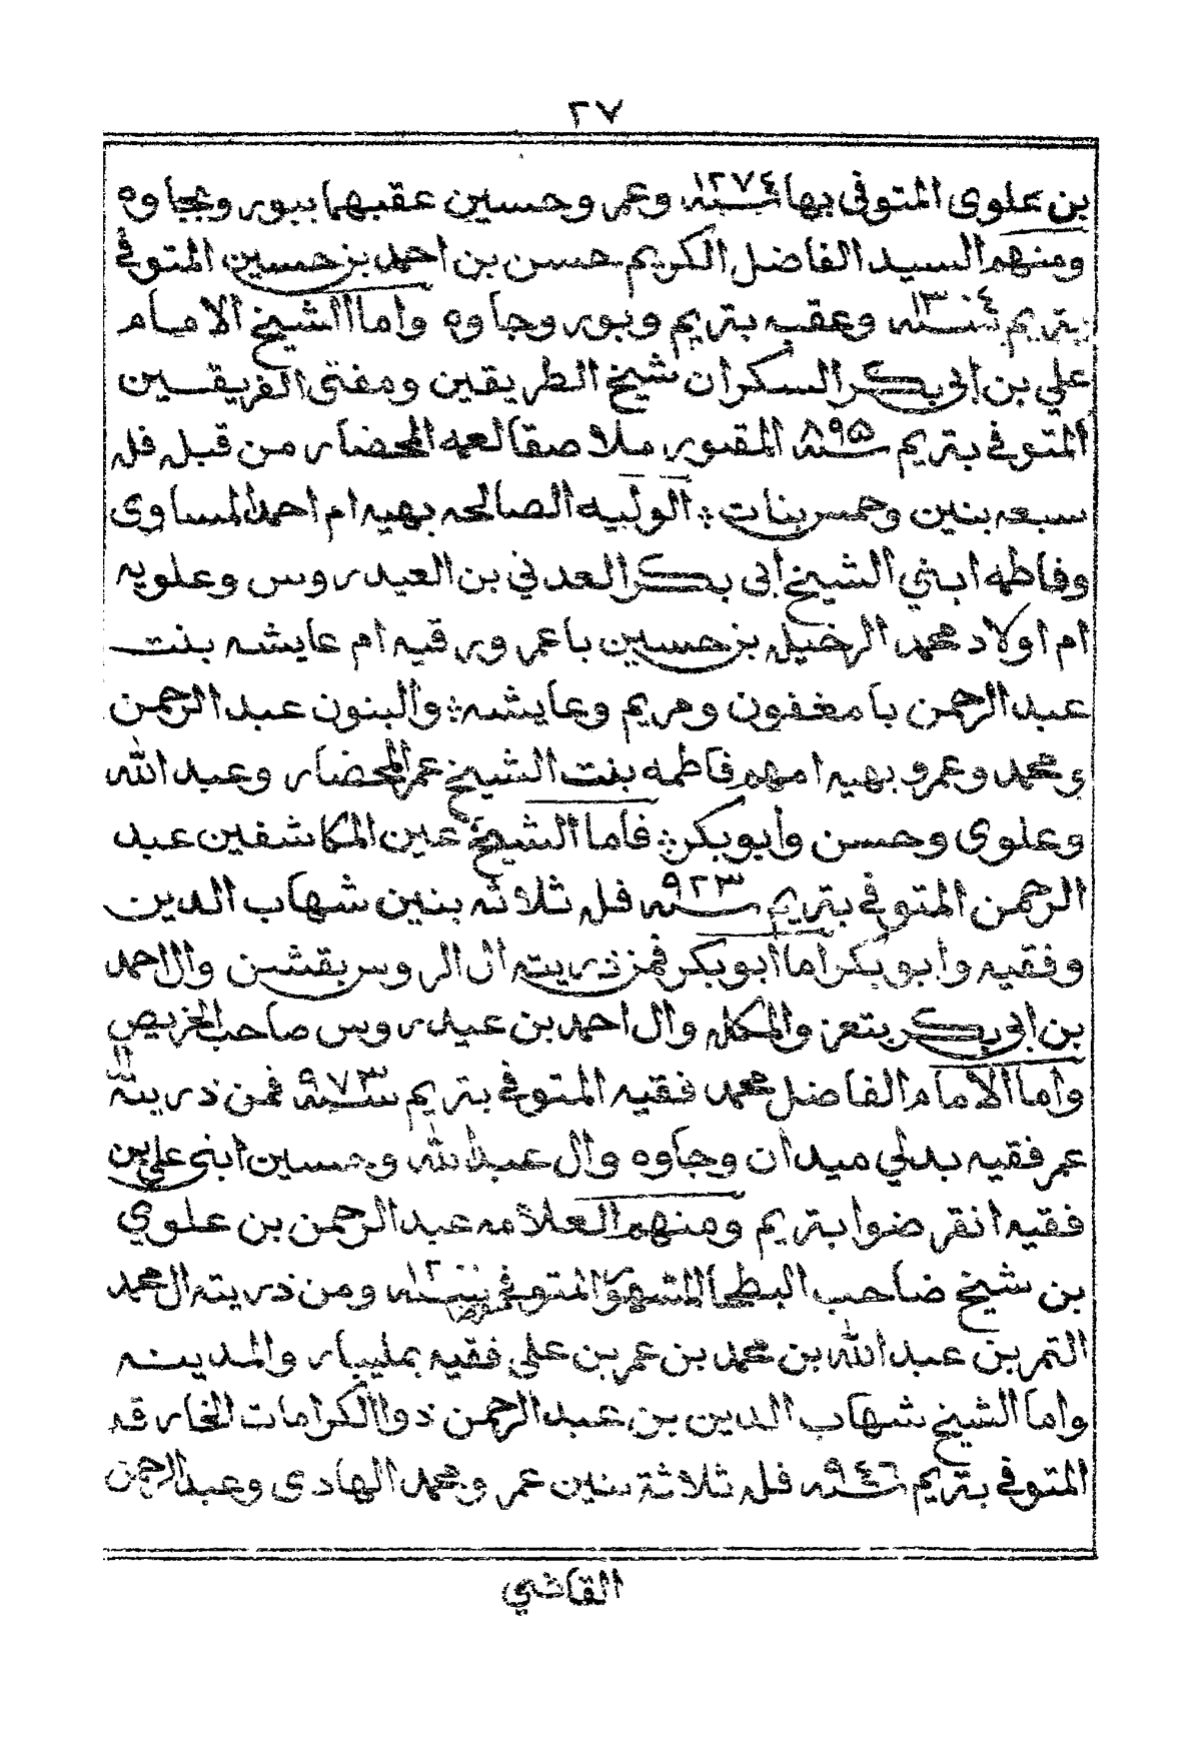 ٢٧
بن علوى المتوفى بها سنه ١٢٧٤ وعمر وحسين عقبهما ببور وبجاوه
ومنهم السيد الفاضل الكريم حسن بن احمد بن حسين المتوفى
بتريم سنه ١٣٠٤ وعقبه بتريم وبور وجاوه واما الشيخ الامام
علي بن ابى بكر السكران شيخ الطريقين ومفتى الفريقين
المتوفى بتريم سنه ٨٩٥ المقبور ملاصقا لعمه المحضار من قبل فله
سبعه بنين وخمس بنات ؞ الوليه الصالحه بهيه ام احمد المساوى
وفاطمه ابني الشيخ ابى بكر العدني بن العيدروس وعلويه
ام اولاد محمد الرخيله بن حسين باعمر ورقيه ام عايشه بنت
عبد الرحمن بامغفون ومريم وعايشه ؞ والبنون عبد الرحمن
ومحمد وعمر وبهيه امهم فاطمه بنت الشيخ عمر المحضار وعبد الله
وعلوى وحسن وأبوبكر ؞ فأما الشيخ عين المكاشفين عبد
الرحمن المتوفى بتريم سنه ٩٢٣ فله ثلاثه بنين شهاب الدين
وفقيه وابوبكر اما أبوبكر فمن ذريته ال الروس بقشن وال احمد
بن ابى بكر بتعز والمكلا وال احمد بن عيدروس صاحب الخريص
وأما الامام الفاضل محمد فقيه المتوفى بتريم سنه ٩٧٣ فمن ذريته ال
عمر فقيه بدلي ميدان وجاوه وال عبد الله وحسين ابنى علي بن
فقيه انقرضوا بتريم ومنهم العلامه عبد الرحمن بن علوي
بن شيخ صاحب البطيحا المشهور المتوفى سنه ١٢٠٠ ومن ذريته ال محمد
التمر بن عبد الله بن محمد بن عمر بن على فقيه بمليبار والمدينه
واما الشيخ شهاب الدين بن عبد الرحمن ذوا الكرامات الخارقه
المتوفى بتريم سنه ٩٤٦ فله ثلاثة بنين عمر ومحمد الهادى وعبد الرحمن
القاضي